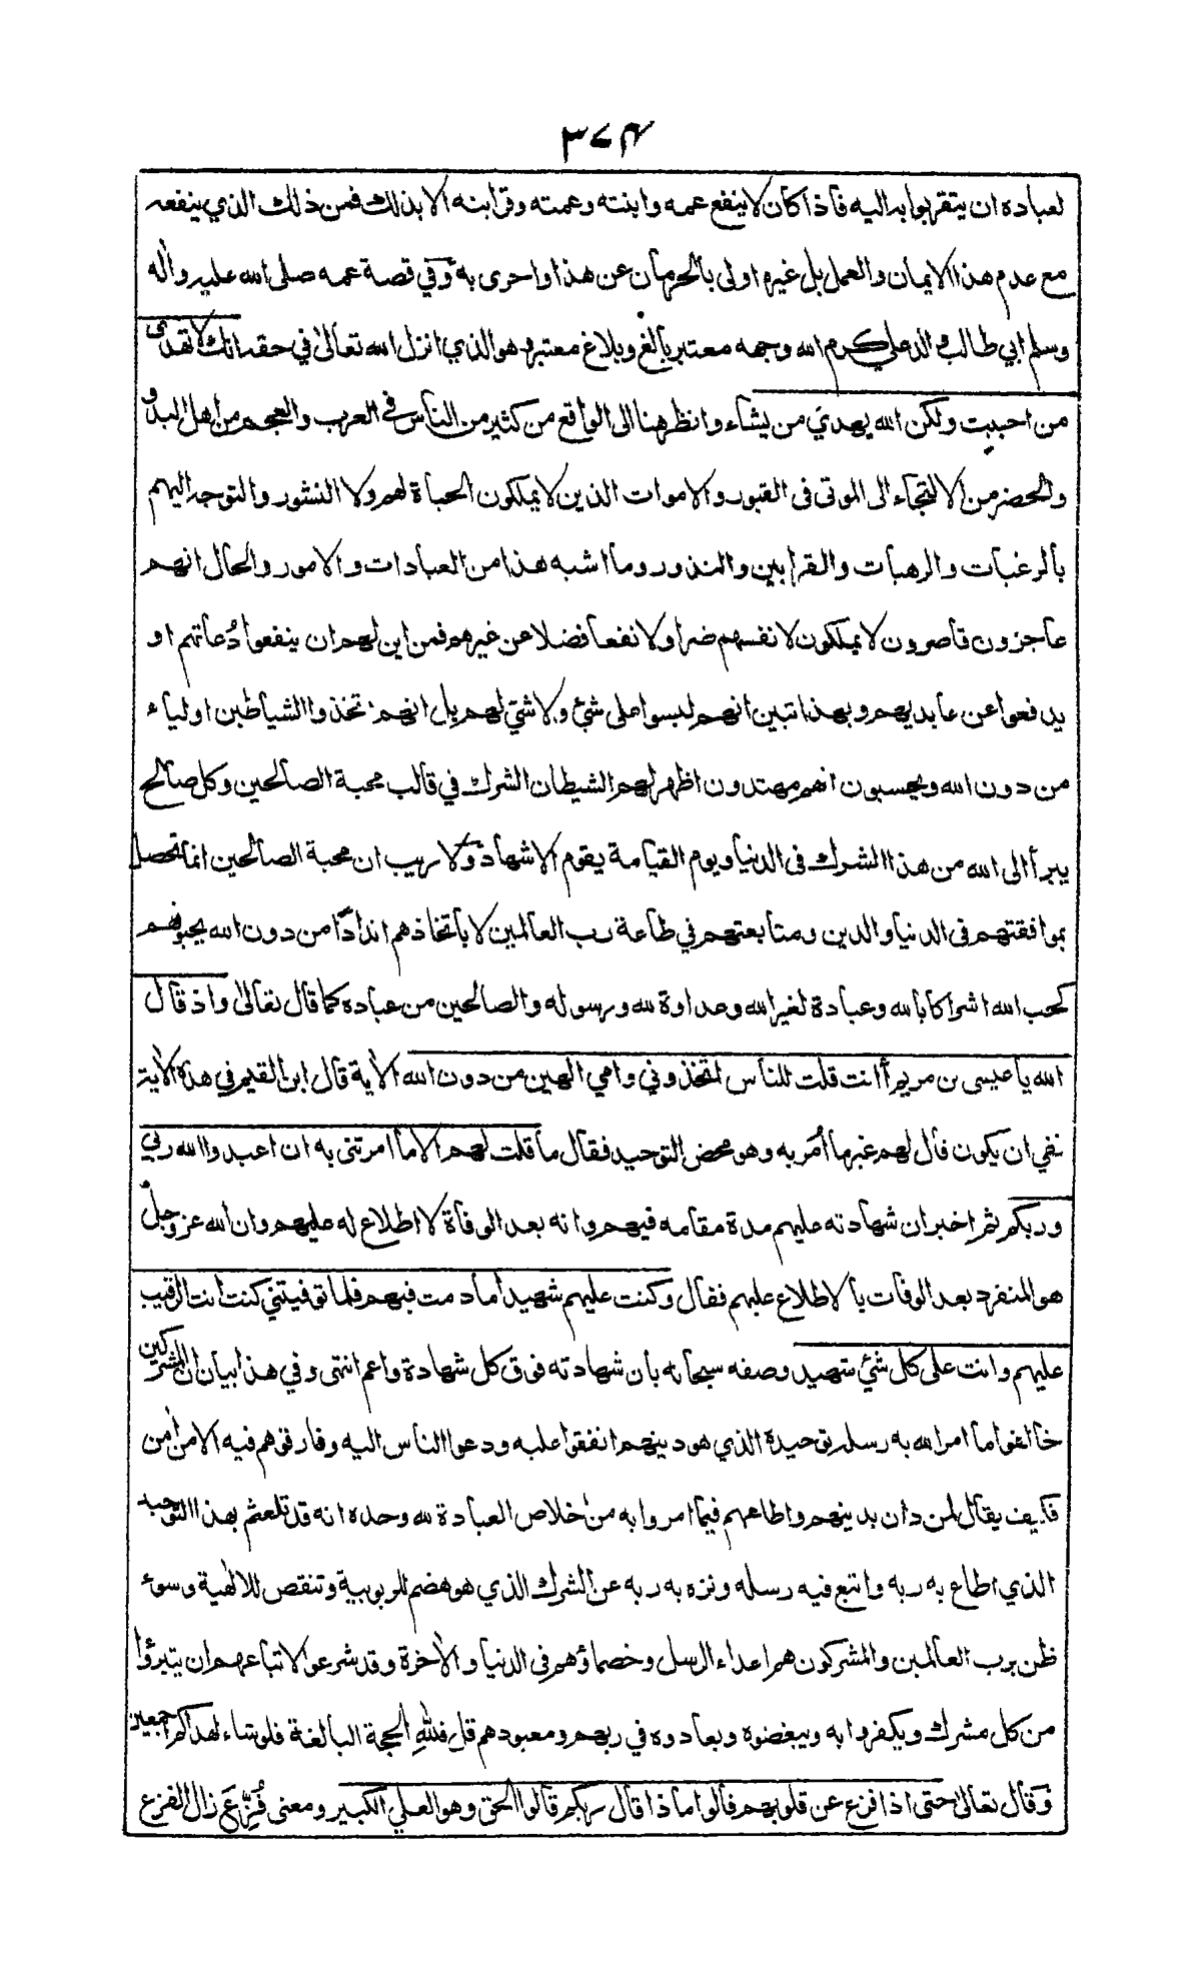 ٣٧٤
لعباده ان يتقربوا به اليه فاذا كان لا ينفع عمه وابنته وعمته وقرابته الا بذلك فمن ذلك الذي ينفعه
مع عدم هذا الايمان والعمل بل غيره اولى بالحرمان عن هذا واحرى به وفي قصة عمه صلى الله عليه واله
وسلم ابي طالب والد علي كرم الله وجهه معتبر بالغ وبلاغ معتبر وهو الذي انزل الله تعالى في حقه انك لا تهدى
من احببت ولكن الله يهدي من يشاء وانظر هنا الى الواقع من كثير من الناس في العرب والعجم من اهل البدو
والحضر من الالتجاء الى الموتى فى القبور والاموات الذين لا يملكون الحياة لهم ولا النشور والتوجه اليهم
بالرغبات والرهبات والقرابين والنذور وما اشبه هذا من العبادات والامور والحال انهم
عاجزون قاصرون لا يملكون لانفسهم ضرا ولا نفعا فضلا عن غيرهم فمن اين لهم ان ينفعوا دُعاتهم او
يدفعوا عن عابديهم وبهذا تبين انهم ليسوا على شئ ولا شئ لهم بل انهم اتخذوا الشياطين اولياء
من دون الله ويحسبون انهم مهتدون اظهر لهم الشيطان الشرك في قالب محبة الصالحين وكل صالح
يبرأ الى الله من هذا الشرك فى الدنيا ويوم القيامة يقوم الاشهاد ولا ريب ان محبة الصالحين انما تحصل
بموافقتهم فى الدنيا والدين ومتابعتهم في طاعة رب العالمين لا باتخاذهم اندادًا من دون الله يحبونهم
كحب الله اشراكا بالله وعبادة لغير الله وعداوة لله ورسوله والصالحين من عباده كما قال تعالى واذ قال
الله يا عيسى بن مريم أانت قلت للناس اتخذوني وامي الهين من دون الله الاية قال ابن القيم في هذه الاية
نفي ان يكون قال لهم غير ما أمر به وهو محض التوحيد فقال ما قلت لهم الا ما امرتنى به ان اعبدوا الله ربي
وربكم ثم اخبر ان شهادته عليهم مدة مقامه فيهم وانه بعد الوفاة لا اطلاع له عليهم وان الله عز وجل
هو المنفرد بعد الوفات بالاطلاع عليهم فقال وكنت عليهم شهيدا ما دمت فيهم فلما توفيتني كنت انت الرقيب
عليهم وانت على كل شئ شهيد وصفه سبحانه بان شهادته فوق كل شهادة واعم انتهى وفي هذا بيان ان المشركين
خالفوا ما امر الله به رسله من توحيده الذي هو دينهم اتفقوا عليه ودعوا الناس اليه وفارقوهم فيه الا من امن
فكيف يقال لمن دان بدينهم واطاعهم فيما امروا به من اخلاص العبادة لله وحده انه قد تلعثم بهذا التوحيد
الذي اطاع به ربه واتبع فيه رسله ونزه به ربه عن الشرك الذي هو هضم للربوبية وتنقص للالهية وسوء
ظن برب العالمين والمشركون هم اعداء الرسل وخصماؤهم فى الدنيا والاخرة وقد شرعوا لاتباعهم ان يتبرؤا
من كل مشرك ويكفروا به ويبغضوه ويعادوه في ربهم ومعبودهم قل فللّه الحجة البالغة فلو شاء لهداكم اجمعين
وقال تعالى حتى اذا فزع عن قلوبهم قالوا ماذا قال ربكم قالوا الحق وهو العلي الكبير ومعنى فُزِّعَ زال الفزع